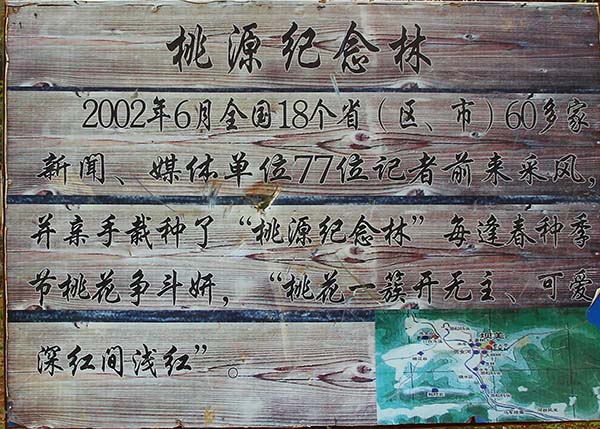 桃源纪念林
2002年6月全国18个省（区、市）60多家
新闻、媒体单位77位记者前来采风，
并亲手栽种了“桃源纪念林”每逢春种季
节桃花争斗妍，“桃花一簇开无主、可爱
深红间浅红”。
坝美